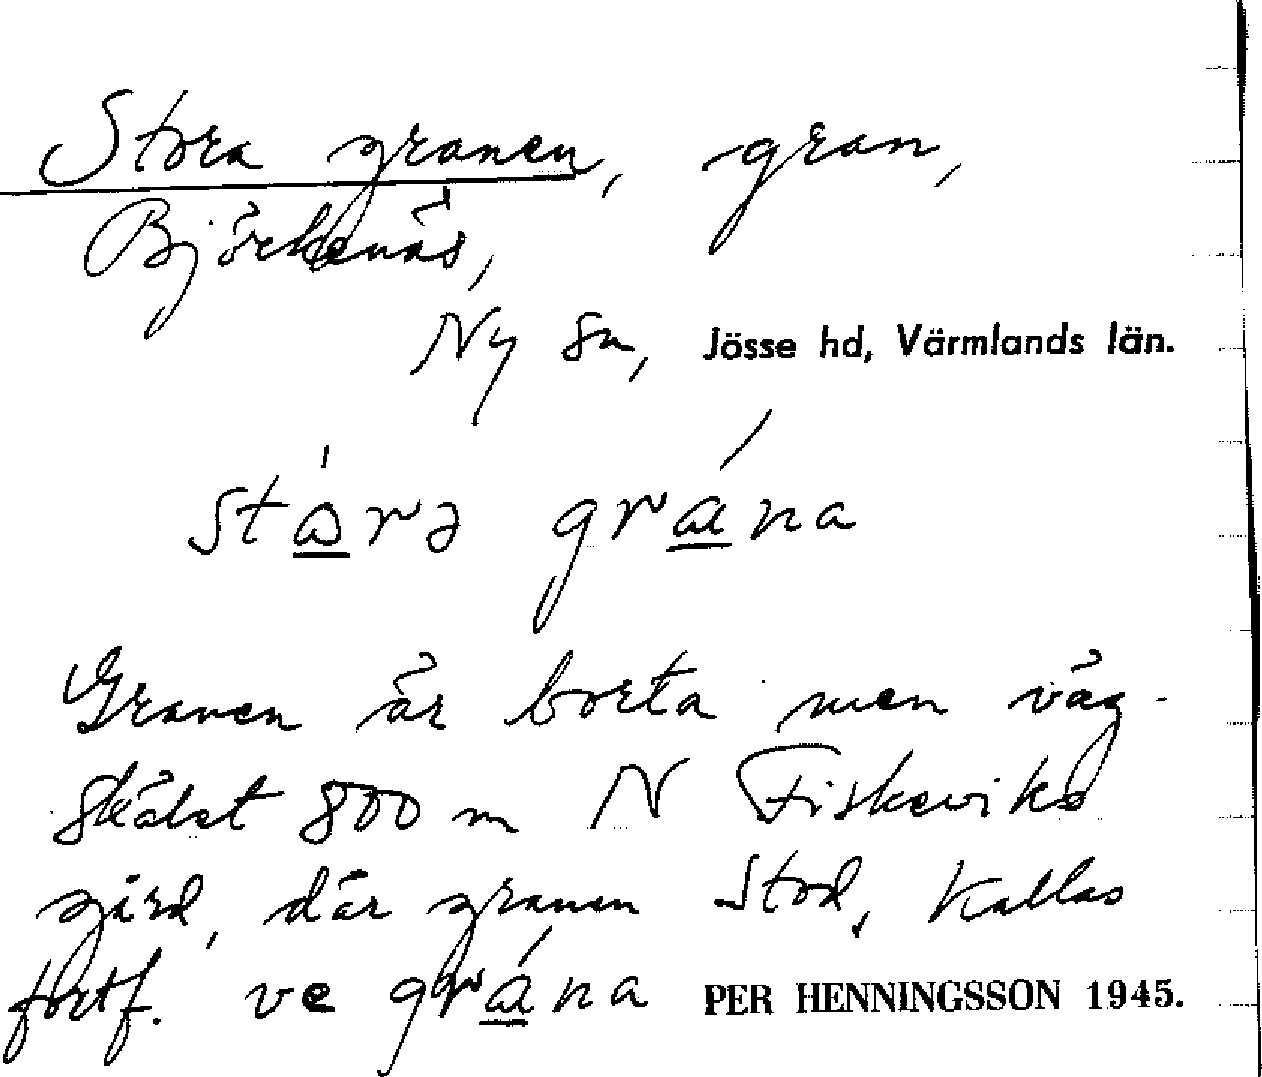 Stora granen, gran,
Björkenäs,
Ny sn, Jösse hd, Värmlands län.
stá̱rə grá̱na
Granen är borta men väg-
skälet 800 m N Fiskeviks
gård, där granen stod, kallas
fortf. ve grá̱na PER HENNINGSSON 1945.